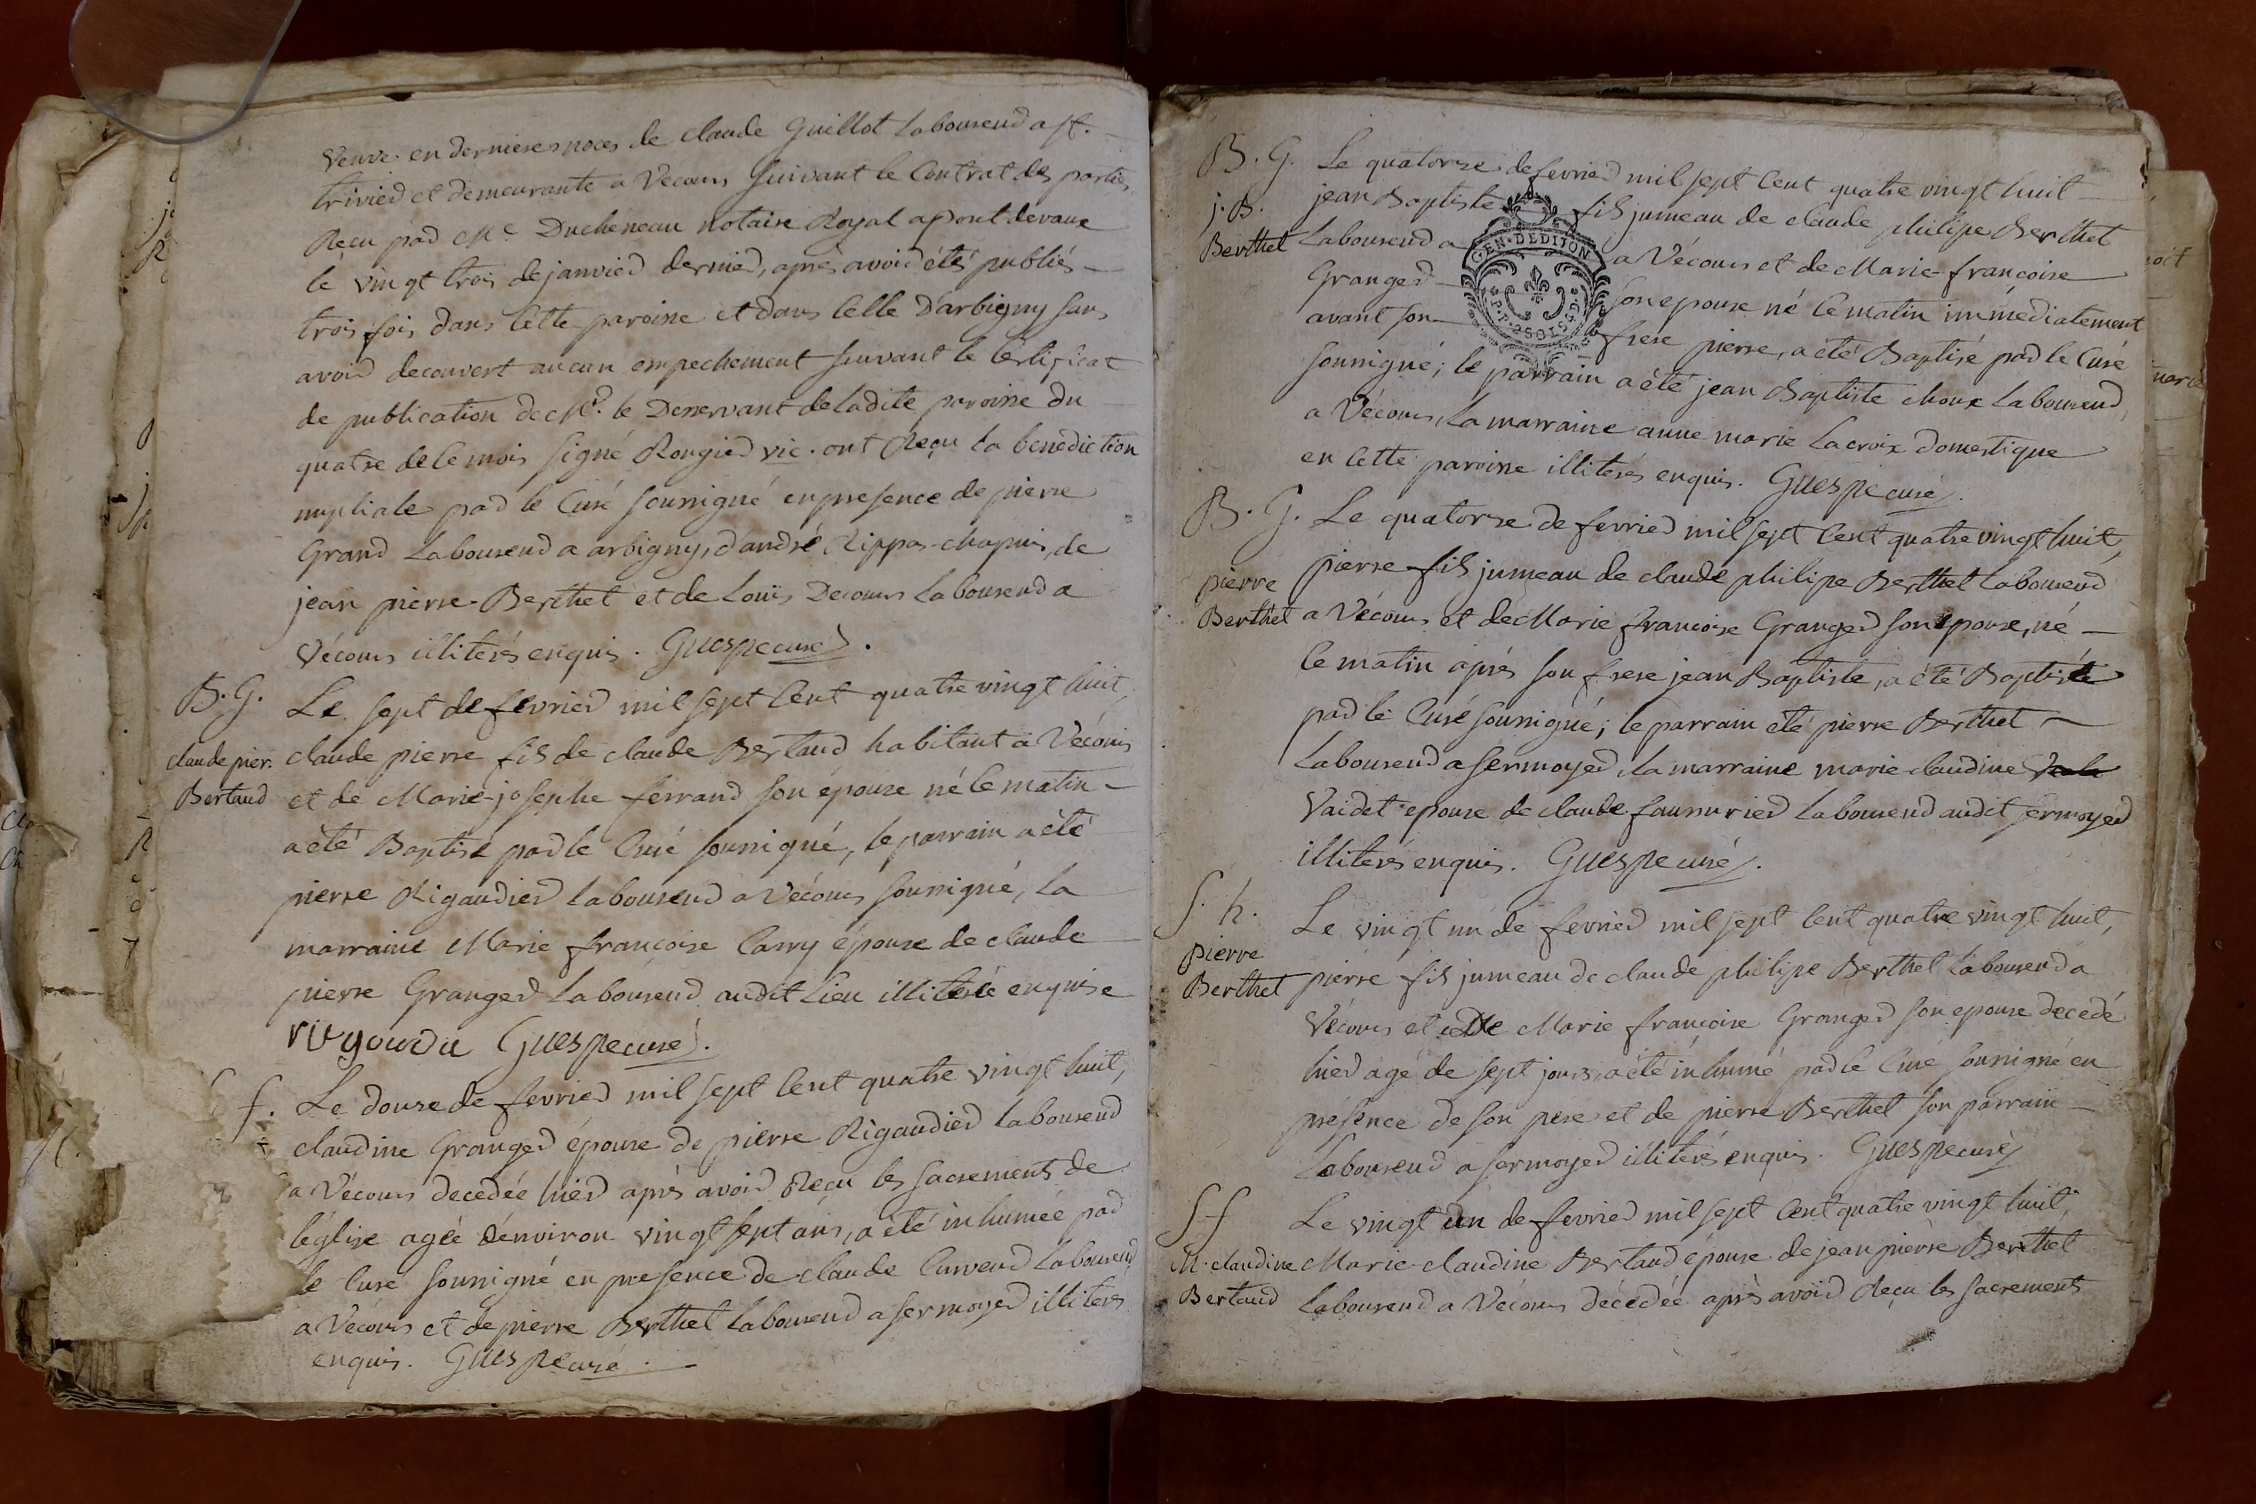 veuve en dernieres noces de claude Guillot laboureur a st.
trivier et demeurante a Vécours suivant le Contrat des parties,
Reçu par me. Ducheneau notaire Royal a pont devaux
le vingt trois de janvier dernier, après avoir étés publiés
trois fois dans cette paroisse et dans celle D'arbigny sans
avoir decouvert aucun empechement suivant le certificat
de publication de mr. le Desservant de ladite paroisse du
quatre de ce mois signé Rougier vic. ont Reçu la benediction
nuptiale par le Curé soussigné en presence de pierre
Grand laboureur a arbigny, d'andré Rippas-chapuis, de
jean pierre Berthet et de Louis Decours laboureur a
Vécours illiterés enquis. Guespe curé.
B. G.
claude pier.
Bertaud
Le sept de fevrier mil sept Cent quatre vingt huit,
claude pierre fils de claude Bertaud habitant a Vécours
et de Marie-josephe ferrand son épouse né ce matin
a été Baptisé par le Curé soussigné, le parrain a été
pierre Rigaudier laboureur a Vécours soussigné, la
marraine Marie françoise Carry épouse de claude
pierre Granger laboureur audit Lieu illiterée enquise
Guespe curé.
f.
Le douze de fevrier mil sept Cent quatre vingt huit,
claudine Granger épouse de pierre Rigaudier laboureur
a Vécours decedée hier après avoir Reçu les sacrements de
l'église agée d'environ vingt sept ans, a été inhumée par
le Curé soussigné en presence de claude laboureur
a Vécours et de pierre Berthet laboureur a sermoyer illiterés
enquis. Guespe curé.
B. G.
j. B.
Berthet
Le quatorze de fevrier mil sept Cent quatre vingt huit
jean Baptiste fils jumeau de claude philipe Berthet
laboureur a EN. DEDITON a Vécours et de Marie-françoise
Granger son epouse né ce matin immédiatement
avant son frere pierre, a été Baptisé par le Curé
soussigné; le parrain a été jean Baptiste choux laboureur
a Vécours, la marraine anne marie Lacroix domestique
en cette paroisse illiterés enquis. Guespe curé.
B. G.
pierre
Berthet
Le quatorze de fevrier mil sept Cent quatre vingt huit,
pierre fils jumeau de claude philipe Berthet laboureur
a Vécours et de Marie françoise Granger son epouse, né
ce matin après son frere jean Baptiste, a été Baptisé
par le Curé soussigné; le parrain eté pierre Berthet
laboureur a sermoyer, la marraine marie claudine
Vaidet epouse de claude laboureur audit sermoyer
illiterés enquis. Guespe curé.
S. h.
pierre
Berthet
Le vingt un de fevrier mil sept Cent quatre vingt huit,
pierre fils jumeau de claude philipe Berthet laboureur a
Vécours et De Marie françoise Granger son epouse decedé
hier agé de sept jours, a été inhumé par le Curé soussigné en
présence de son pere et de pierre Berthet son parrain
laboureur a sermoyer illiterés enquis. Guespe curé
S. f
M. claudine
Bertaud
Le vingt un de fevrier mil sept Cent quatre vingt huit,
Marie-claudine Bertaud épouse de jean pierre Berthet
laboureur a Vécours décédée après avoir Reçu les sacrements